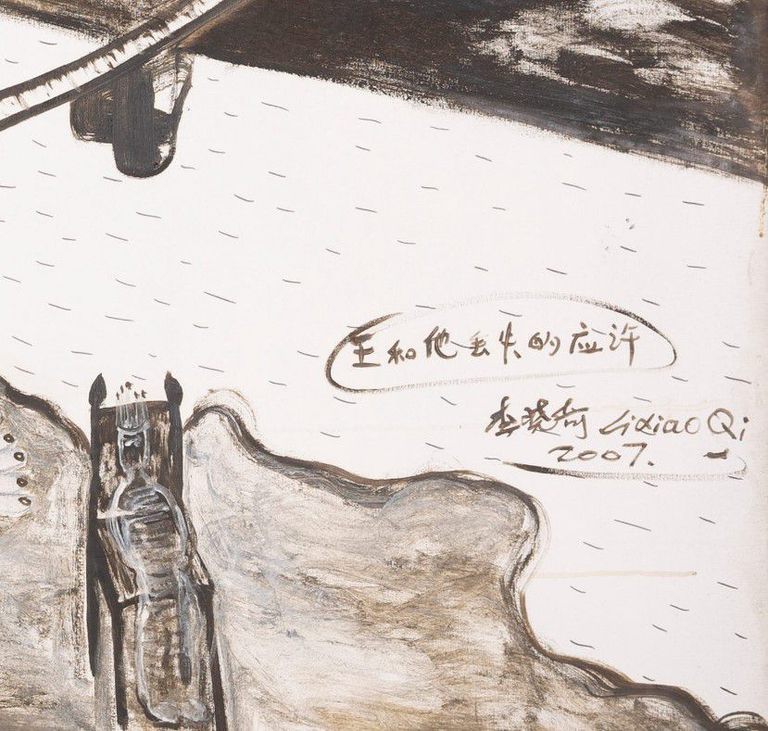 王和他丢失的应许
李晓奇 LiXiaoQi
2007.